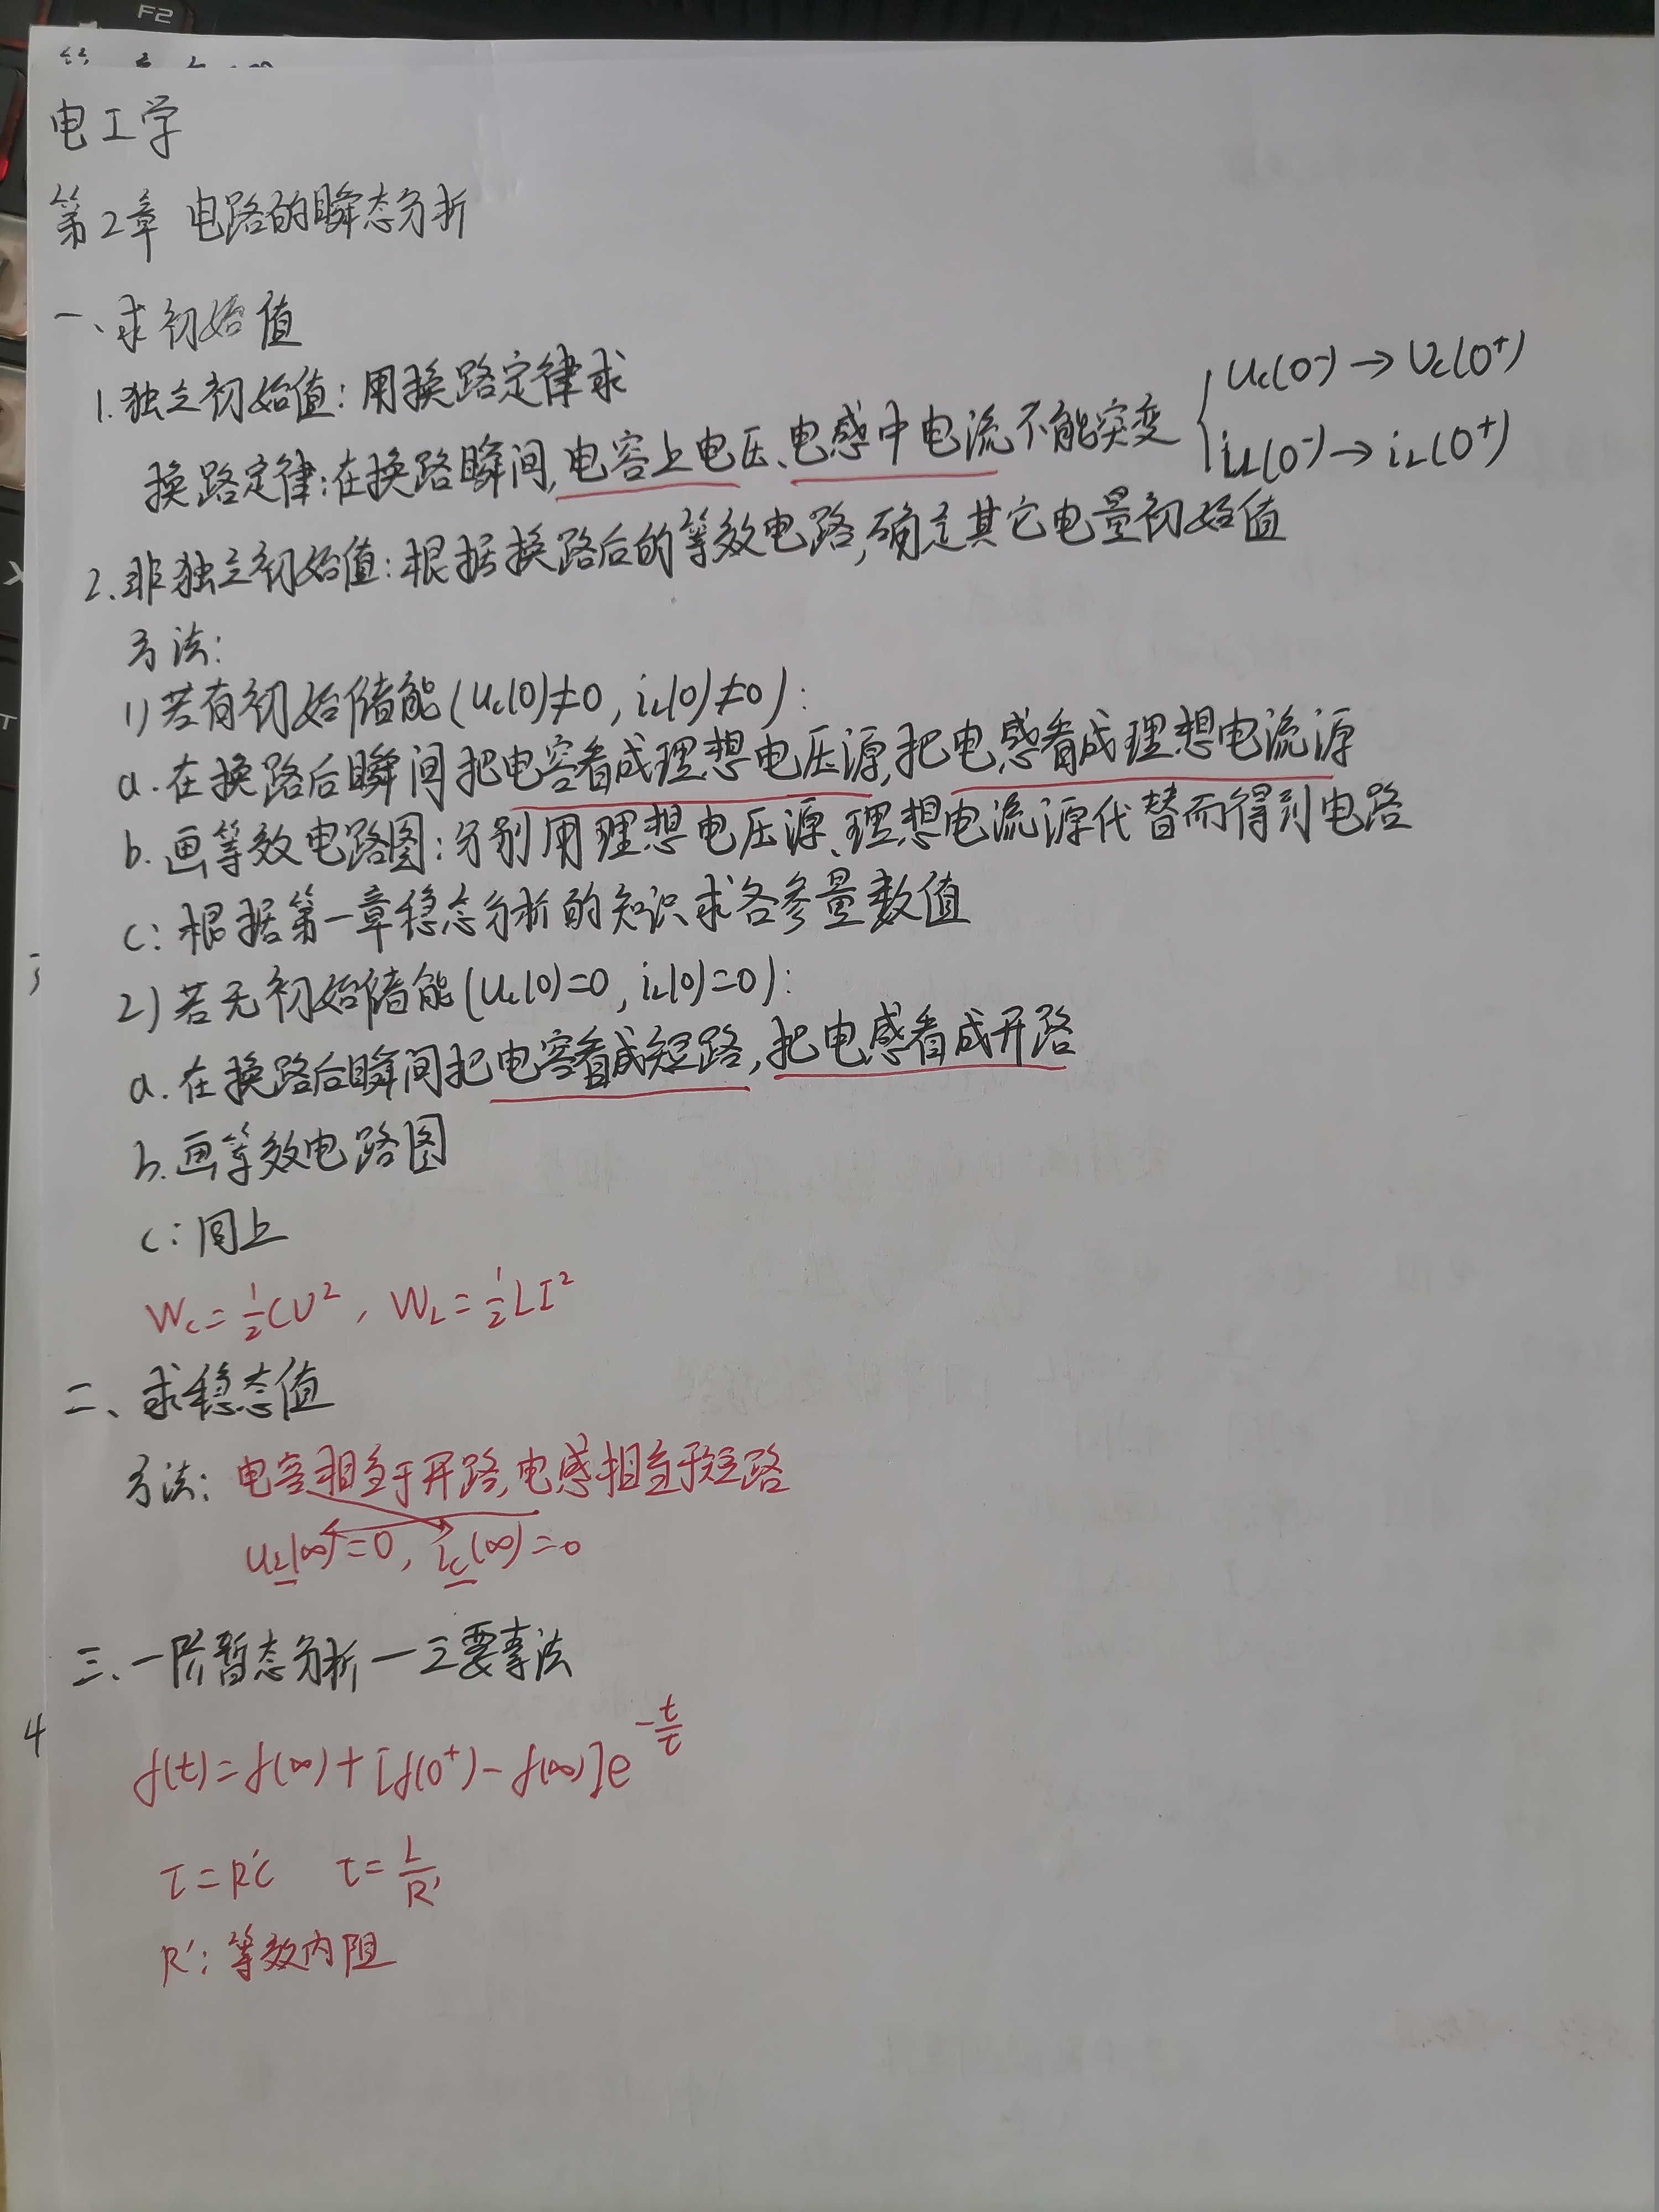 F2
电工学
第2章 电路的瞬态分析
一、求初始值
1.独立初始值：用换路定律求
换路定律：在换路瞬间,电容上电压、电感中电流不能突变 { uc(0⁻)→uc(0⁺)
iL(0⁻)→iL(0⁺)
2.非独立初始值：根据换路后的等效电路,确定其它电量初始值
方法：
1)若有初始储能(uc(0)≠0,iL(0)≠0)：
a.在换路后瞬间把电容看成理想电压源,把电感看成理想电流源
b.画等效电路图：分别用理想电压源、理想电流源代替而得到电路
c：根据第一章稳态分析的知识求各参量数值
2)若无初始储能(uc(0)=0,iL(0)=0)：
a.在换路后瞬间把电容看成短路,把电感看成开路
b.画等效电路图
c：同上
Wc=½CU²,WL=½LI²
二、求稳态值
方法：电容相当于开路,电感相当于短路
uL(∞)=0,ic(∞)=0
三、一阶暂态分析—三要素法
f(t)=f(∞)+[f(0⁺)-f(∞)]e^(-t/τ)
τ=R'C τ=L/R'
R'：等效内阻
4